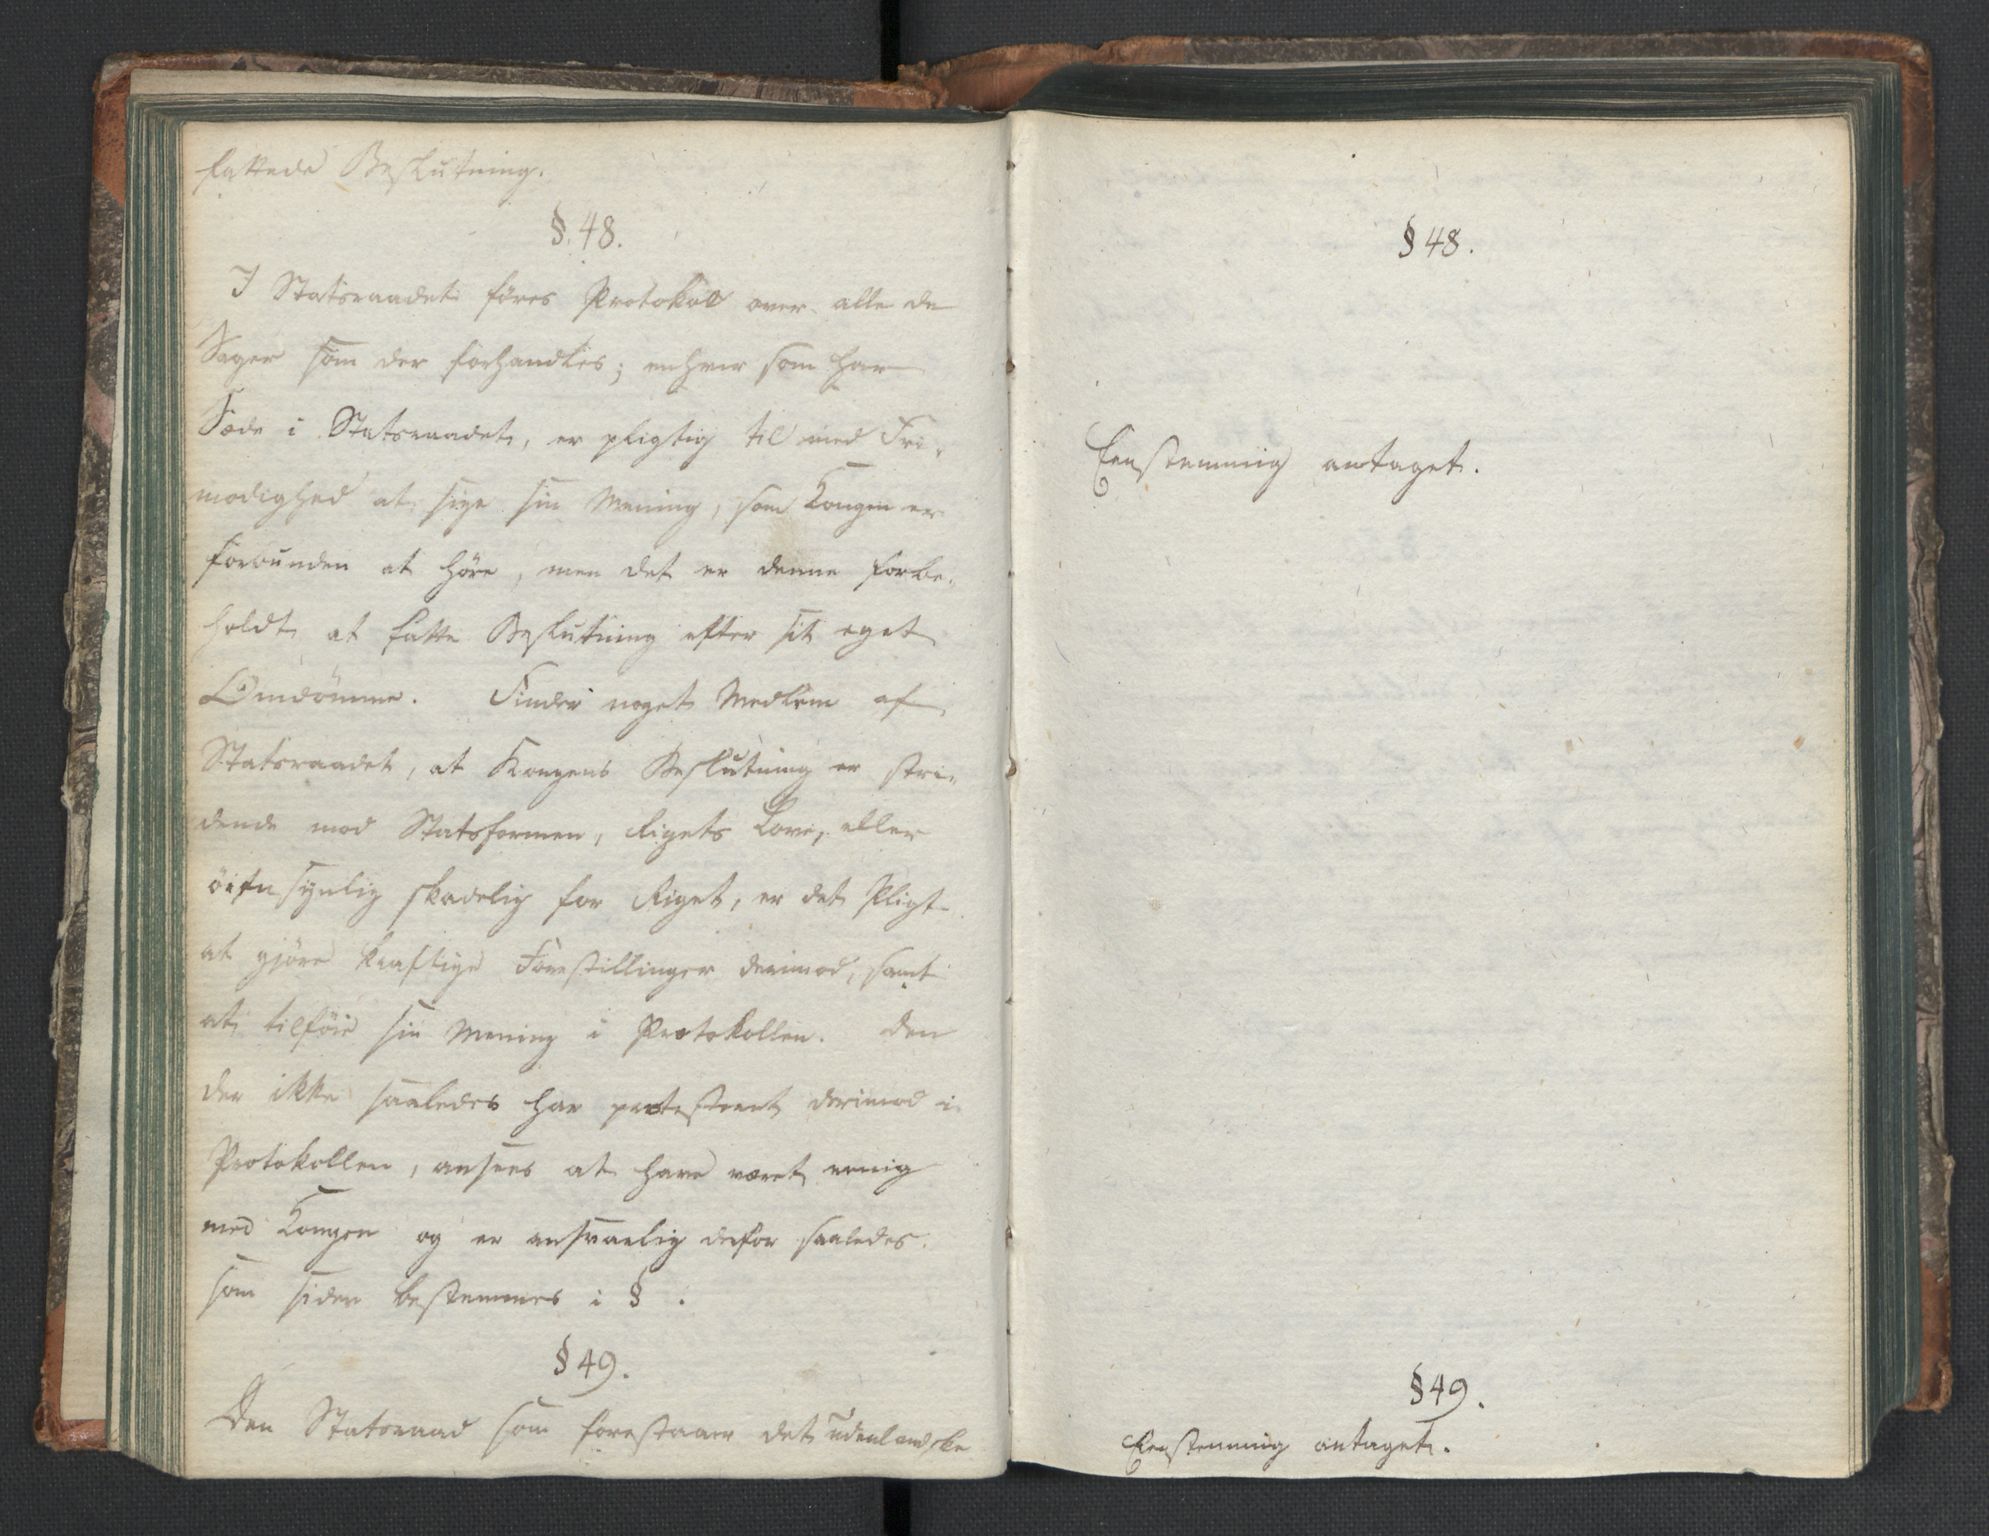 fattede Beslutning.
§. 48.
I Statsraadet föres Protokol over alle de
Sager som der forhandles; enhver som har
Sæde i Statsraadet, er pligtig til med Fri-
modighed at sige sin Mening, som Kongen er
forbunden at høre, men det er denne forbe-
holdt at fatte Beslutning efter sit eget
Omdömme. Finder noget Medlem af
Statsraadet, at Kongens Beslutning er stri-
dende mod Statsformen, Rigets Love, eller
öiensynlig skadelig for Riget, er det Pligt
at gjöre kraftige Forestillinger derimod, samt
at tilföie sin Mening i Protokollen. Den
der ikke saaledes har protesteret derimod i
Protokollen, ansees at have været eenig
med Kongen og er ansvarlig derfor saaledes
som siden bestemmes i § .
§ 49.
Den Statsraad som forestaaer det udenlandske
§ 48.
Eenstemmig antaget.
§ 49.
Eenstemmig antaget.